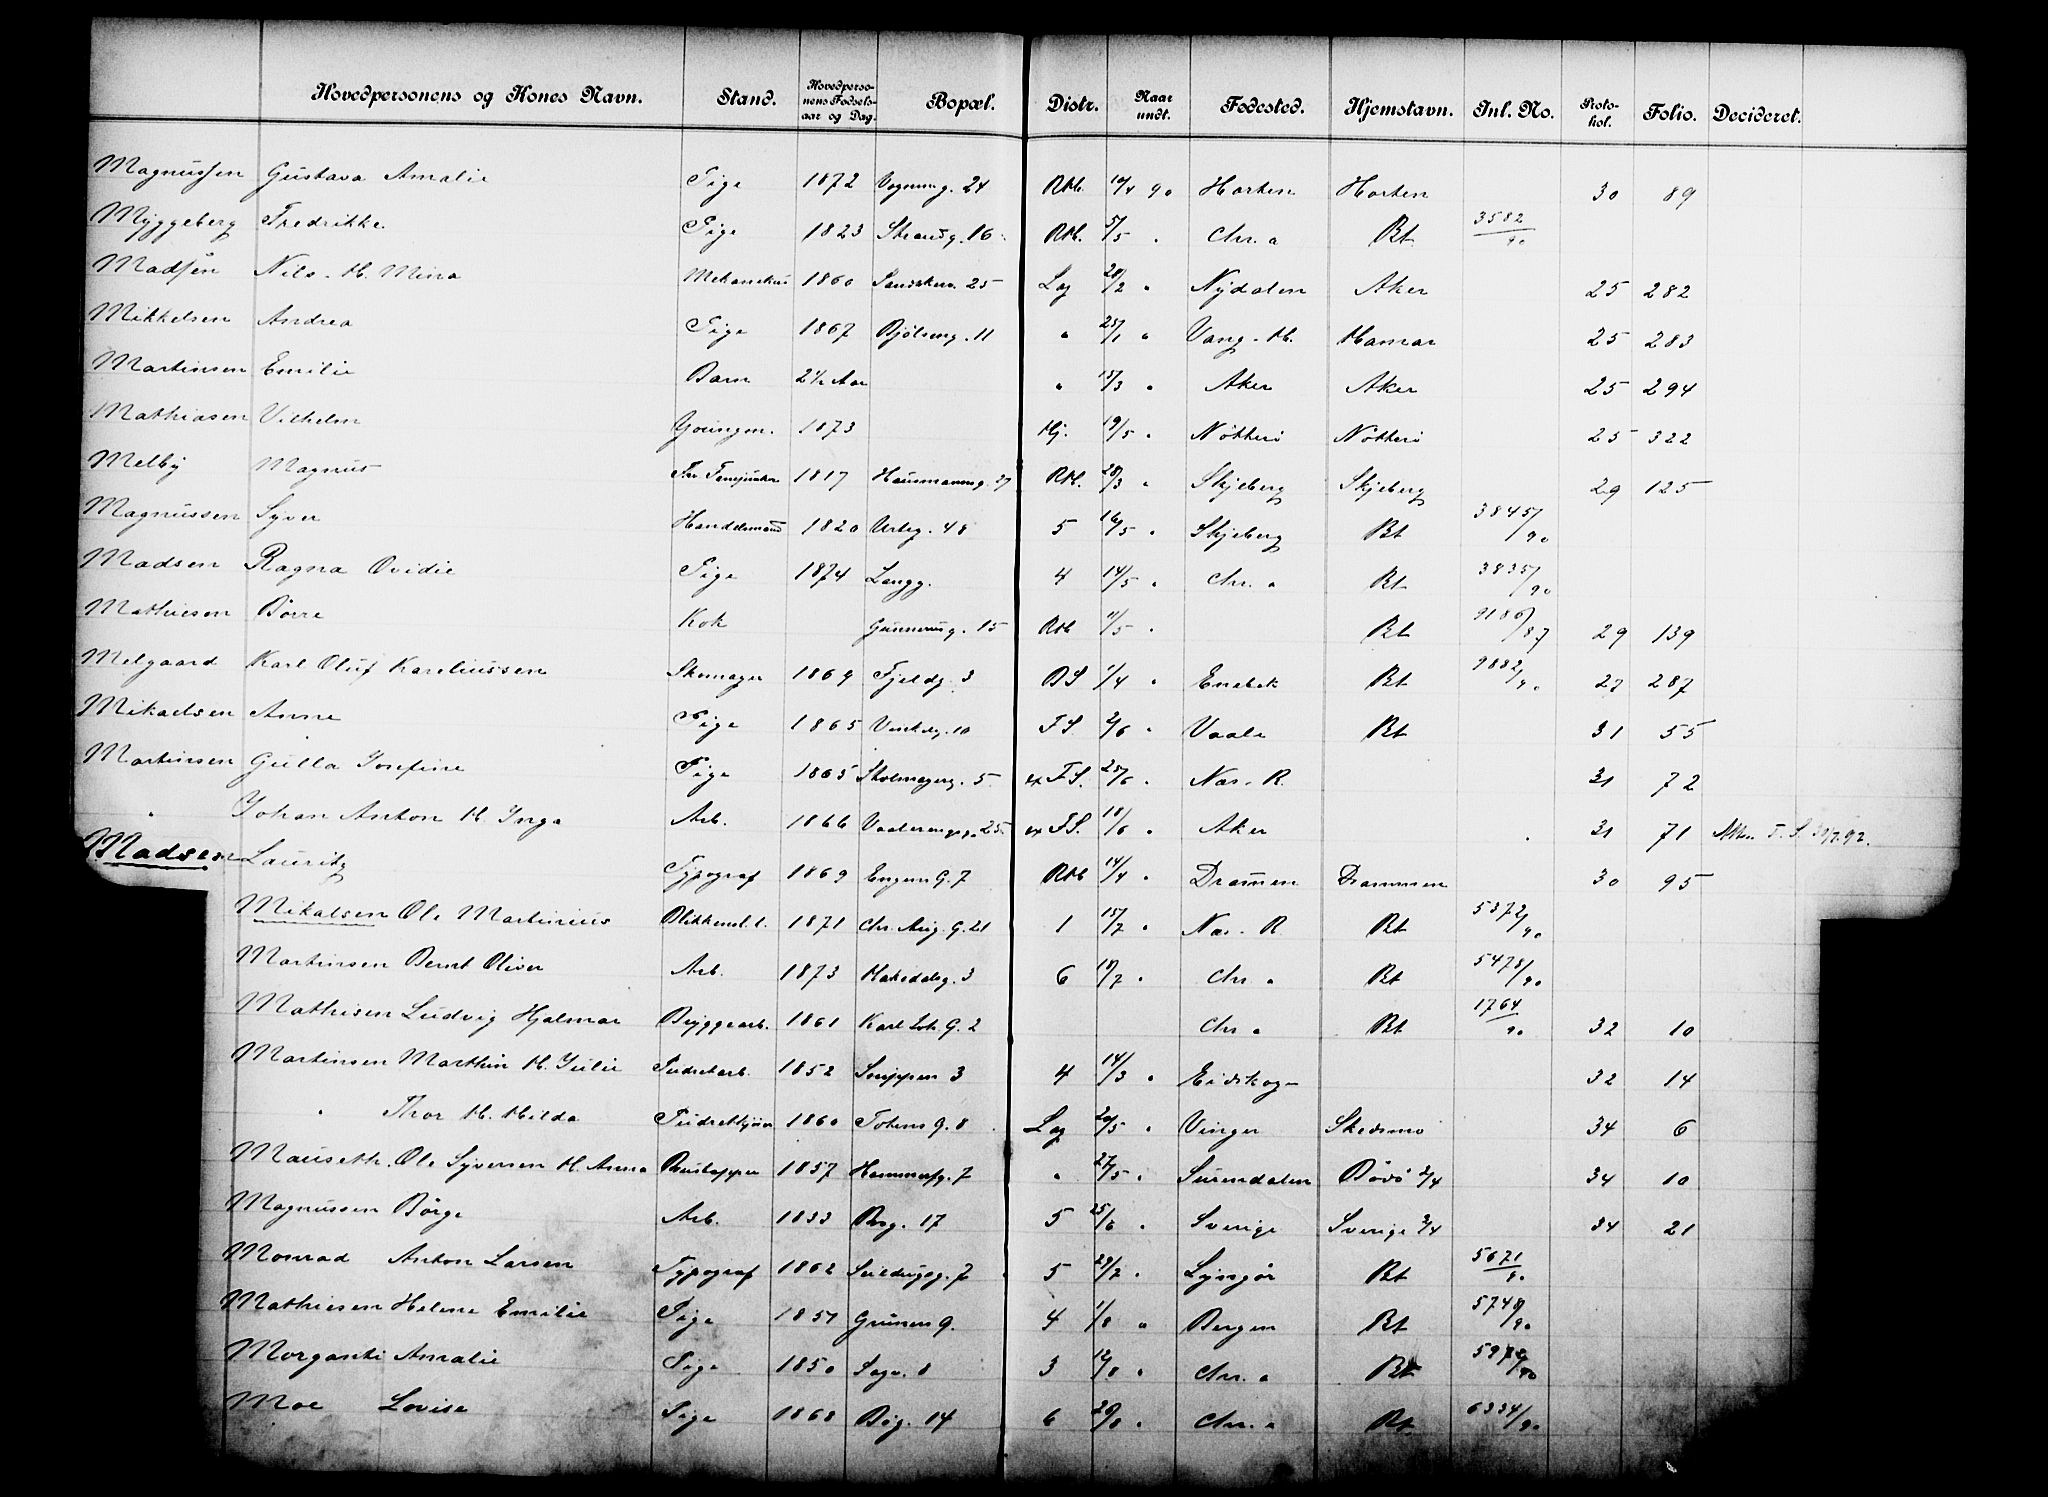 Hovedpersonens og Kones Navn. Stand. Hovedpersonens Fødselsaar og Dag. Bopæl. Distr. Naar undt. Fødested. Hjemstavn. Inl. No. Protokol. Folio. Decideret.
Magnussen Gustava Amalie Pige 1872 Vognmg. 24 Rkl. 10/4 90 Horten Horten 30 89
Myggeberg Fredrikke Pige 1823 Strandg. 16 Rkl. 5/5 " Chr.a Bt 3582/90
Madsen Nils. H. Mina Mekanikus 1860 Sandakerv. 25 Lag 28/2 " Nydalen Aker 25 282
Mikkelsen Andrea Pige 1867 Bjølseng. 11 " 25/1 " Vang. H. Hamar 25 283
Martinsen Emilie Barn 2½ Aar " 15/3 " Aker Aker 25 294
Mathiasen Vilhelm Yoüngm. 1873 Hj. 19/5 " Nötterö Nötterö 25 322
Melby Magnus 1817 Hausmannsg. 27 Rkl. 28/3 " Skjeberg Skjeberg 29 125
Magnussen Syver Handelsmand 1820 Urteg. 48 5 16/5 " Skjeberg Bt 3845/90
Madsen Ragna Ovidie Pige 1874 Langg. 4 14/5 " Chr.a Bt 3835/90
Mathiesen Börre Kok Gunnerusg. 15 Rkl 11/5 " Bt 9186/87 29 139
Melgaard Karl Oluf Kareliussen Skomager 1869 Fjeldg. 3 BS 1/4 " Enebak Bt 9882/90 27 287
Mikaelsen Anne Pige 1865 10 FS 2/6 " Vaale Bt 31 55
Martinsen Gulla Josefine Pige 1865 Skolmagerg. 5 FS. 25/6 " Næs. R. 31 72
" Johan Anton H. Inga Arb. 1866 Vaalerengsg. 25 FS. 18/6 " Aker 31 71 F. S. 30/7.92.
Madsen Lauritz Typograf 1869 Engens G. 7 Rkl 14/4 " Dramen Drammen 30 95
Mikalsen Ole Martinius Blikkensl. l. 1871 Chr. Aug. G. 21 1 15/7 " Næs. R. Bt 5372/90
Martinsen Bernt Oliver Arb. 1873 Hakedalsg. 3 6 18/7 " Chr.a Bt 5478/90
Mathisen Ludvig Hjalmar Bryggearb. 1861 Karl Joh. G. 2 Chr.a Bt 1764/90 32 10
Martinsen Marthin H. Julie Pudretarb. 1852 Snippen 3 4 14/3 " Eidskog 32 14
" Thor H. Hilda Pudretkjører 1860 Totens G. 8 Lag 20/5 " Vinger Skedsmo 34 6
Mauseth. Ole Syversen H. Anna 1857 Hammerfg. 7 " 27/5 " Surendalen Bövö 2/4 34 10
Magnussen Börge Arb. 1833 17 5 25/6 " Sverige Sverige 2/4 34 21
Monrad Anton Larsen Typograf 1862 Sæildugsg. 7 5 29/7 " Lyngör Bt 5671/90
Mathiesen Helene Emilie Pige 1851 Grüners G. 4 1/8 " Bergen Bt 5748/90
Morganti Amalie Pige 1850 Sagv. 8 3 12/8 " Chr.a Bt
Moe Lovise Pige 1868 14 6 20/8 " Chr.a Bt 6334/90